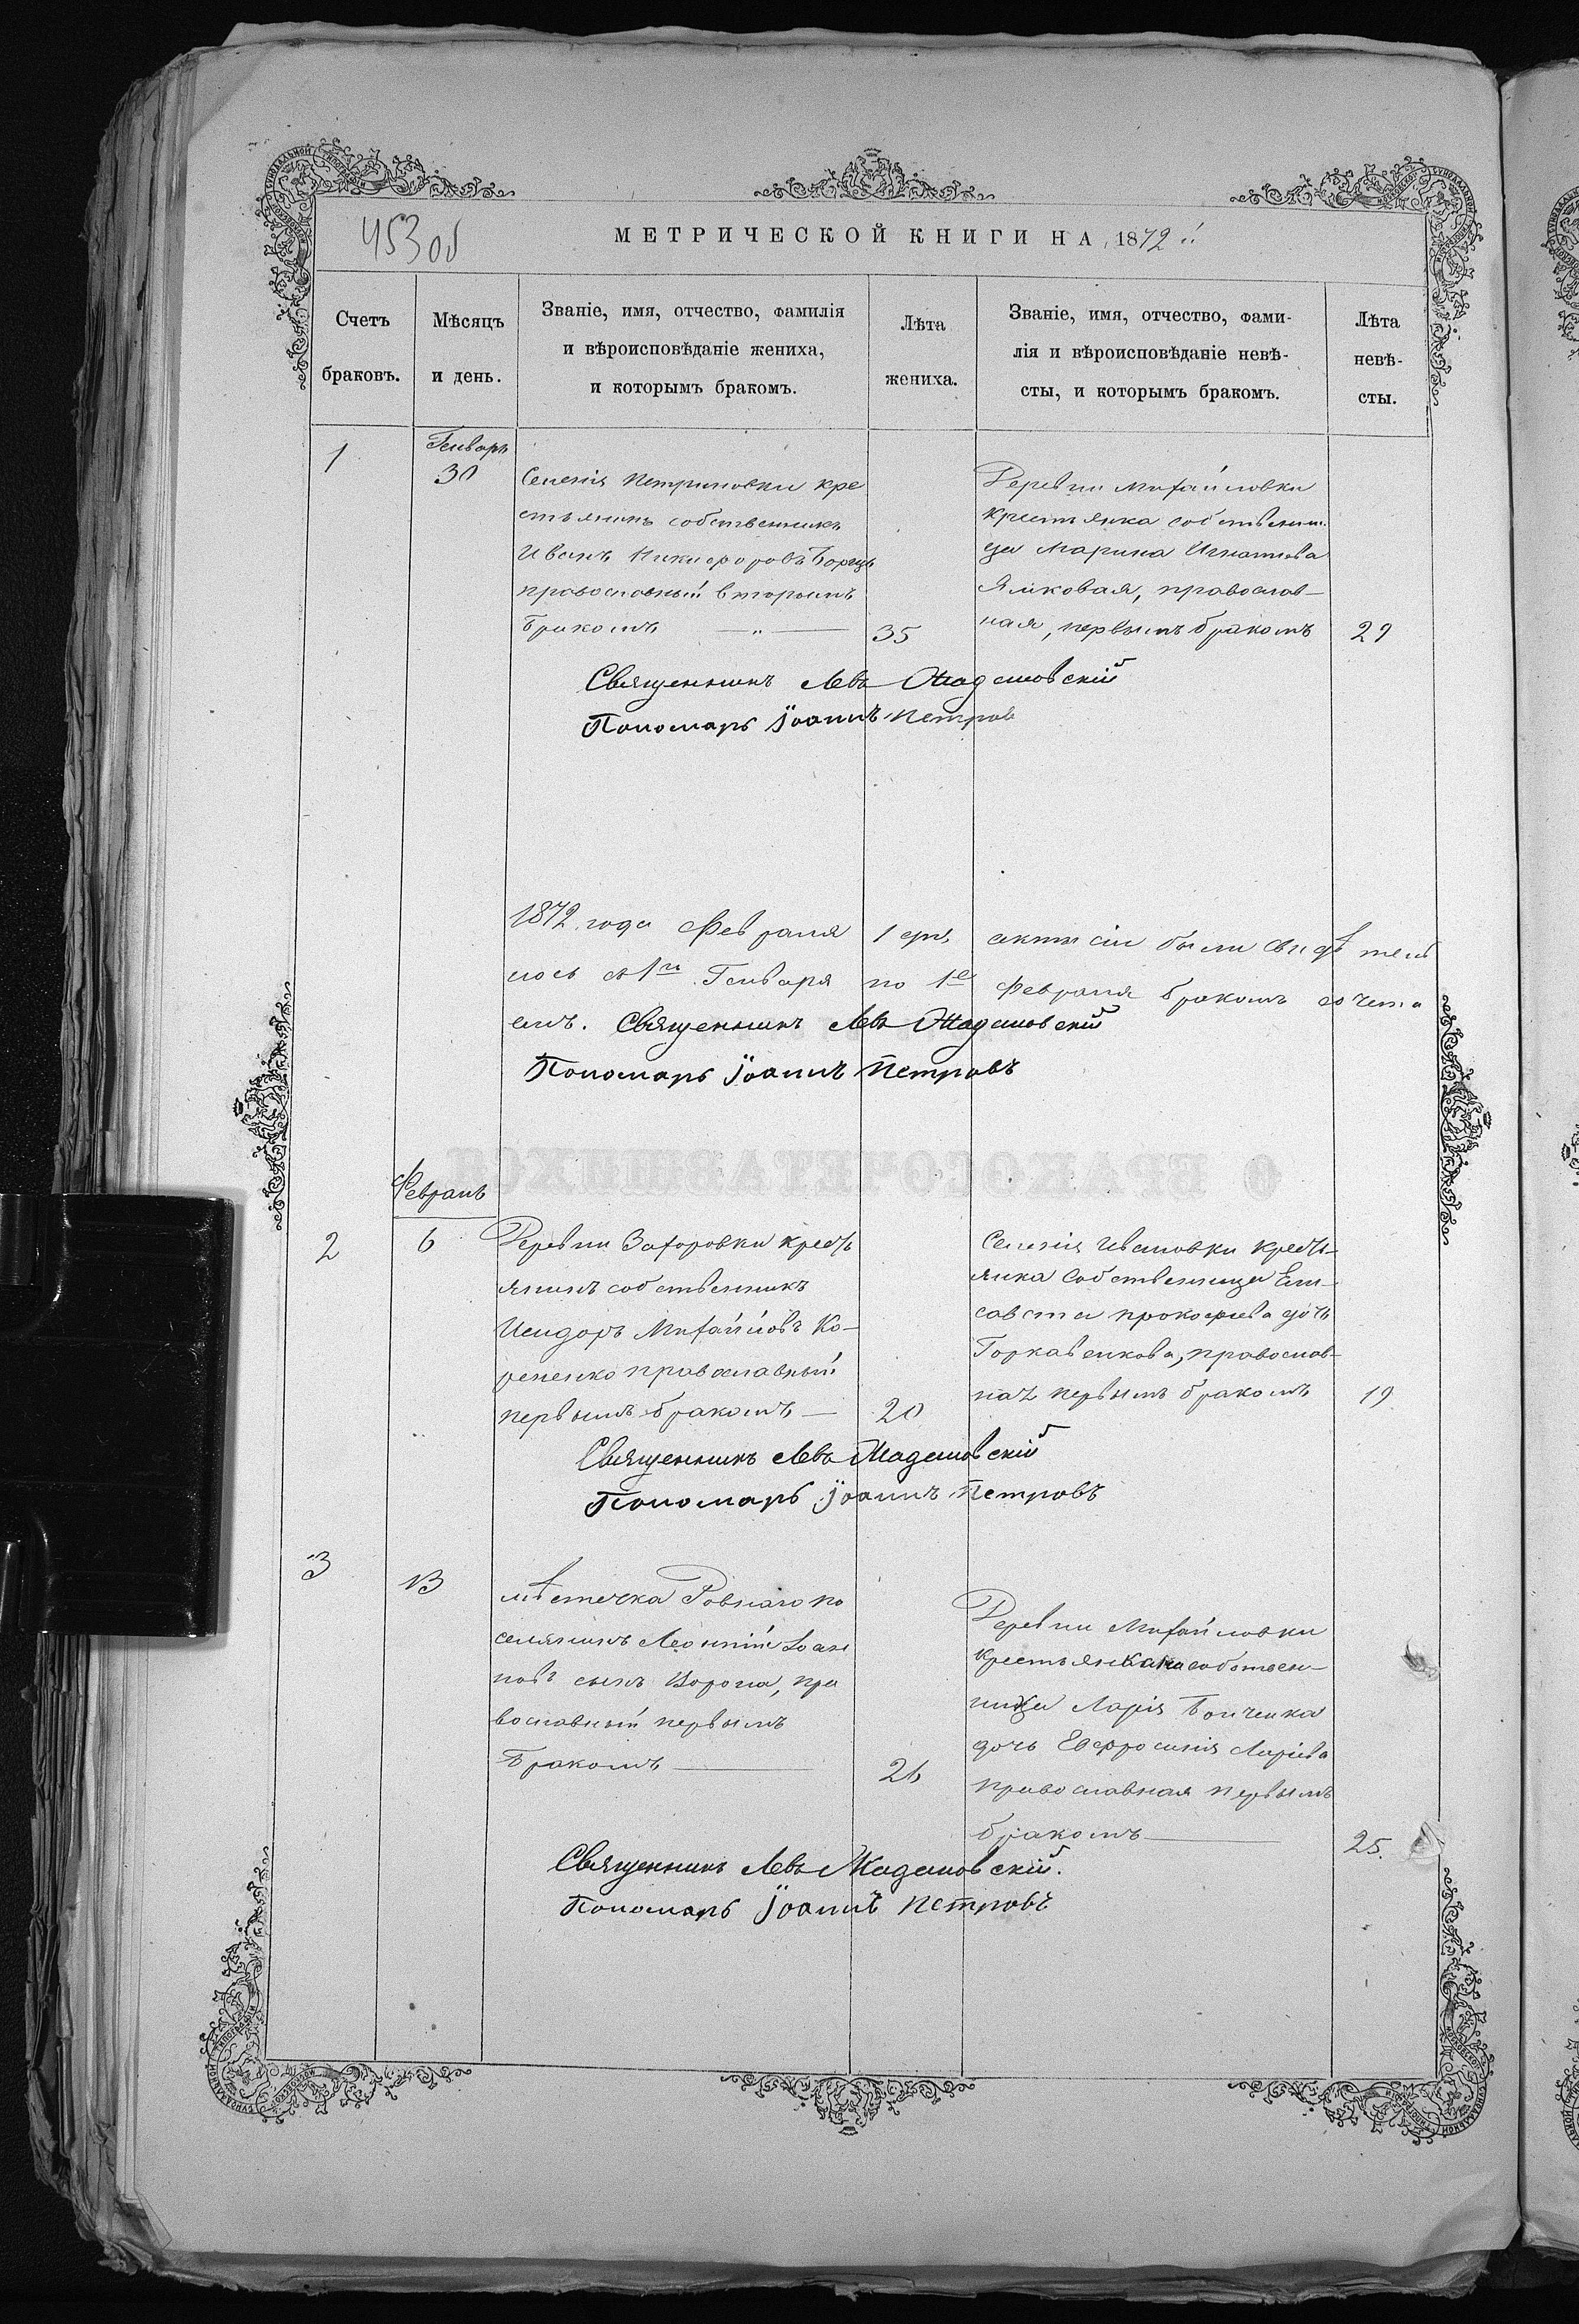 453 об
МЕТРИЧЕСКОЙ КНИГИ НА 1872 й
Счетъ
браковъ.
Мѣсяцъ
и день.
Званіе, имя, отчество, фамилія
и вѣроисповѣданіе жениха,
и которымъ бракомъ.
Лѣта
жениха.
Званіе, имя, отчество, фами-
лія и вѣроисповѣданіе невѣ-
сты, и которымъ бракомъ.
Лѣта
невѣ-
сты.
1
Генварь
30
Селенія Петриковки кре
стьянинъ собственникъ
Иванъ Никифоровъ
православный вторымъ
бракомъ — " —
35
Деревни Михайловки
крестьянка собственни
ца Марина Игнатьева
православ-
ная, первымъ бракомъ
29
Священникъ Левъ Жадановскій
Пономарь Іоаннъ Петровъ
1872 года Февраля 1 дня акты сіи были свидѣтель
с 1го Генваря по 1е Февраля бракомъ сочета
Священникъ Левъ Жадановскій
Пономарь Іоаннъ Петровъ
Февраль
2
6
Деревни Захоровки кресть
янинъ собственникъ
Исидоръ Михайловъ Ко-
ренко православный
первымъ бракомъ —
20
Селенія Ивановки кресть-
янка собственница Ели-
савета Прокофіева дочь
Горкавенкова, православ-
ная первымъ бракомъ
19
Священникъ Левъ Жадановскій
Пономарь Іоаннъ Петровъ
3
13
мѣстечка Ровнаго по
селянинъ Леонтій Іоан
новъ сынъ Ворона, пра
вославный первымъ
бракомъ —
26
Деревни Михайловки
крестьянка собствен-
ница Марія Бойченка
дочь Евфросинія
православная первымъ
бракомъ —
25.
Священникъ Левъ Жадановскій.
Пономарь Іоаннъ Петровъ